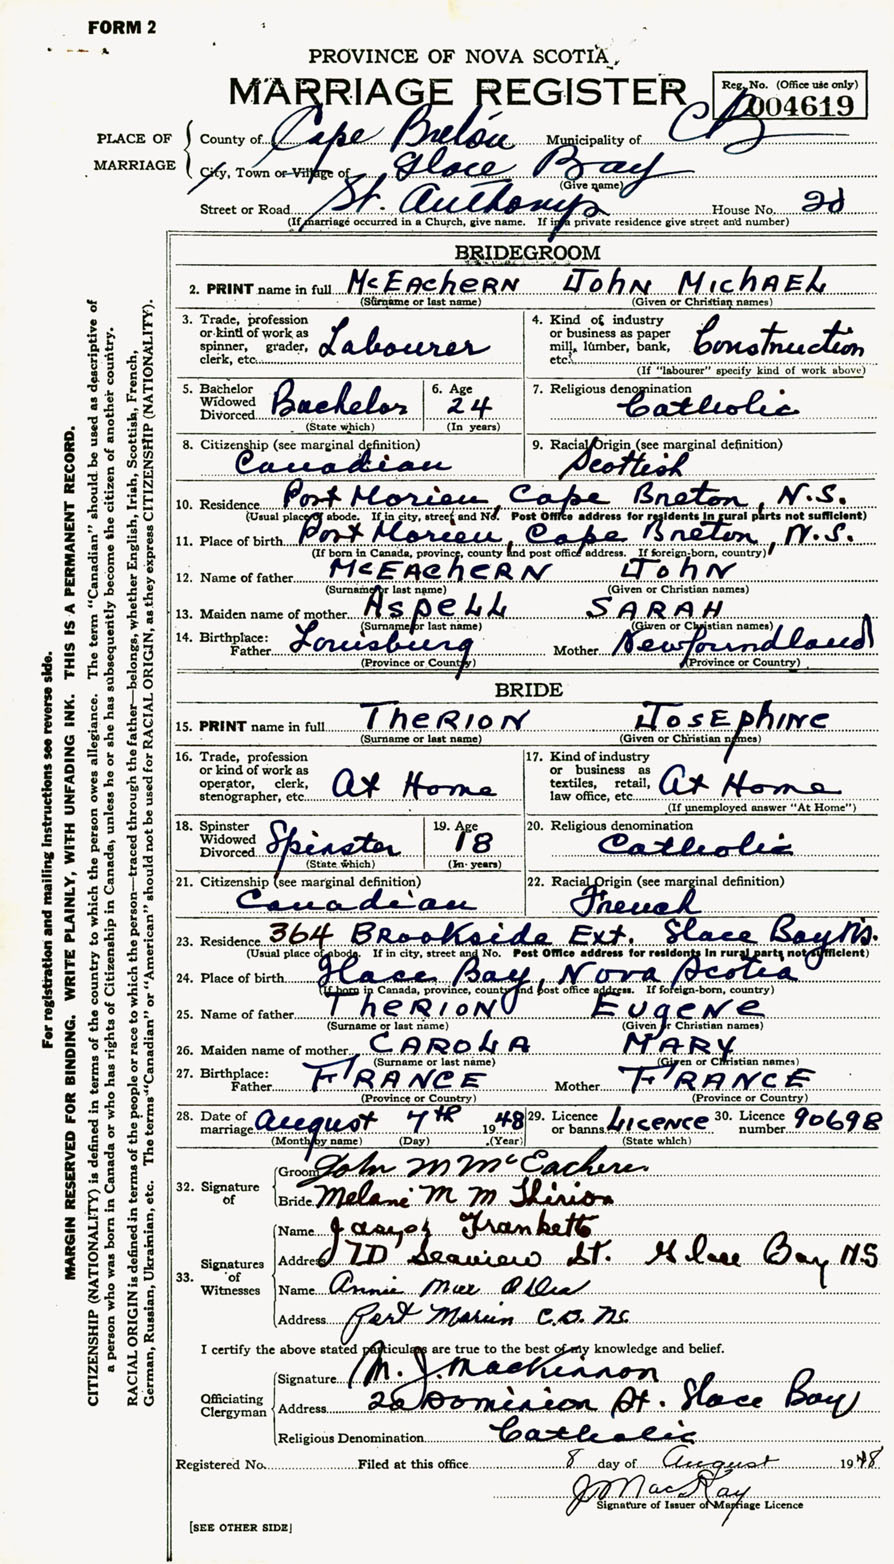 FORM 2
PROVINCE OF NOVA SCOTIA
MARRIAGE REGISTER
Reg. No. (Office use only)
004619
PLACE OF MARRIAGE
County of Cape Breton Municipality of CB
City, Town or Village of Glace Bay
(Give name)
Street or Road St. Anthonys House No. 2d
(If marriage occurred in a Church, give name. If in a private residence give street and number)
BRIDEGROOM
2. PRINT name in full McEACHERN JOHN MICHAEL
(Surname or last name) (Given or Christian names)
3. Trade, profession or kind of work as spinner, grader, clerk, etc. Labourer
4. Kind of industry or business as paper mill, lumber, bank, etc. Construction
(If "labourer" specify kind of work above)
5. Bachelor Widowed Divorced Bachelor
(State which)
6. Age 24
(In years)
7. Religious denomination Catholic
8. Citizenship (see marginal definition) Canadian
9. Racial Origin (see marginal definition) Scottish
10. Residence Port Morien, Cape Breton, N.S.
(Usual place of abode. If in city, street and No. Post Office address for residents in rural parts not sufficient)
11. Place of birth Port Morien, Cape Breton, N.S.
(If born in Canada, province, county and post office address. If foreign-born, country)
12. Name of father McEACHERN JOHN
(Surname or last name) (Given or Christian names)
13. Maiden name of mother ASPELL SARAH
(Surname or last name) (Given or Christian names)
14. Birthplace: Father Louisburg Mother Newfoundland
(Province or Country) (Province or Country)
BRIDE
15. PRINT name in full THERION JOSEPHINE
(Surname or last name) (Given or Christian names)
16. Trade, profession or kind of work as operator, clerk, stenographer, etc. At Home
17. Kind of industry or business as textiles, retail, law office, etc. At Home
(If unemployed answer "At Home")
18. Spinster Widowed Divorced Spinster
(State which)
19. Age 18
(In years)
20. Religious denomination Catholic
21. Citizenship (see marginal definition) Canadian
22. Racial Origin (see marginal definition) French
23. Residence 364 Brookside Ext. Glace Bay N.S.
(Usual place of abode. If in city, street and No. Post Office address for residents in rural parts not sufficient)
24. Place of birth Glace Bay, Nova Scotia
(If born in Canada, province, county and post office address. If foreign-born, country)
25. Name of father THERION EUGENE
(Surname or last name) (Given or Christian names)
26. Maiden name of mother CAROLA MARY
(Surname or last name) (Given or Christian names)
27. Birthplace: Father FRANCE Mother FRANCE
(Province or Country) (Province or Country)
28. Date of marriage August 7th 1948
(Month by name) (Day) (Year)
29. Licence or banns LICENCE
(State which)
30. Licence number 90698
32. Signature of
Groom John M McEachern
Bride Melanie M M Thirion
33. Signatures of Witnesses
Name
Address 7D Seaview St. Glace Bay NS
Name Annie Mae
Address Port Morien C.B. NS
I certify the above stated particulars are true to the best of my knowledge and belief.
Officiating Clergyman
Signature M. J. MacKinnon
Address Dominion St. Glace Bay
Religious Denomination Catholic
Registered No. Filed at this office 8 day of August 1948
J MacKay
Signature of Issuer of Marriage Licence
[SEE OTHER SIDE]
For registration and mailing instructions see reverse side.
MARGIN RESERVED FOR BINDING. WRITE PLAINLY, WITH UNFADING INK. THIS IS A PERMANENT RECORD.
CITIZENSHIP (NATIONALITY) is defined in terms of the country to which the person owes allegiance. The term "Canadian" should be used as descriptive of
a person who was born in Canada or who has rights of Citizenship in Canada, unless he or she has subsequently become the citizen of another country.
RACIAL ORIGIN is defined in terms of the people or race to which the person—traced through the father—belongs, whether English, Irish, Scottish, French,
German, Russian, Ukrainian, etc. The terms "Canadian" or "American" should not be used for RACIAL ORIGIN, as they express CITIZENSHIP (NATIONALITY).